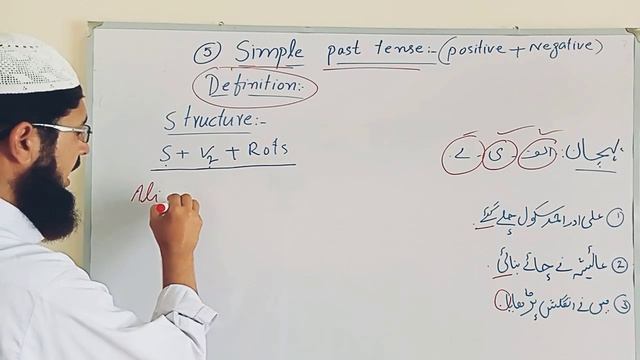 ⑤ Simple past tense:- (positive + Negative)
Definition:-
Structure:-
S + V2 + Rots
Ali
پہچان: الف ی ے
① علی اور احمد سکول چلے گئے
② عائیشہ نے چائے بنائی
③ میں نے انگلش پڑھایا